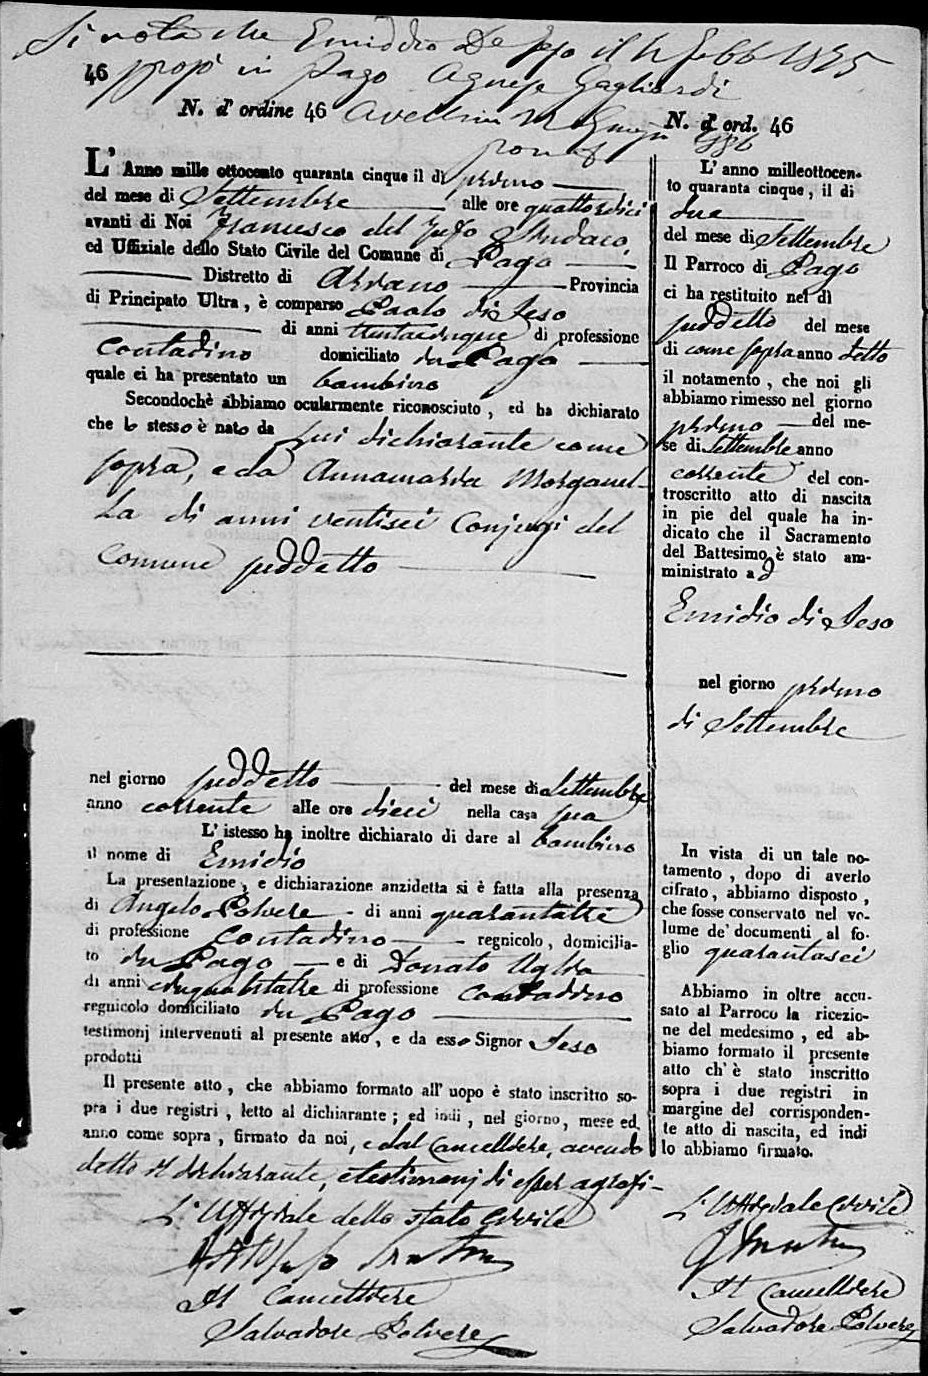 Si nota che Emiddio De Jeso il 4 Febb 1875
46 sposò in Pago Agnese Gagliardi
N. d' ordine 46
Avellino
L' Anno mille ottocento quaranta cinque il dì primo
del mese di Settembre alle ore quattordici
avanti di Noi Francesco del Sindaco
ed Uffiziale dello Stato Civile del Comune di Pago
Distretto di Ariano Provincia
di Principato Ultra, è comparso Paolo di Jeso
di anni trentacinque di professione
contadino domiciliato in Pago
quale ci ha presentato un bambino
Secondochè abbiamo ocularmente riconosciuto, ed ha dichiarato
che lo stesso è nato da lui dichiarante come
sopra, e da Annamaria Morganel-
la di anni ventisei Conjugi del
Comune suddetto
nel giorno suddetto del mese di Settembre
anno corrente alle ore dieci nella casa sua
L' istesso ha inoltre dichiarato di dare al bambino
il nome di Emidio
La presentazione, e dichiarazione anzidetta si è fatta alla presenza
di Angelo Polvere di anni quarantatre
di professione Contadino regnicolo, domicilia-
to in Pago e di Donato Uglia
di anni cinquantatre di professione contadino
regnicolo domiciliato in Pago
testimonj intervenuti al presente atto, e da esso Signor Jeso
prodotti
Il presente atto, che abbiamo formato all' uopo è stato inscritto so-
pra i due registri, letto al dichiarante; ed indi, nel giorno, mese ed
anno come sopra, firmato da noi, e dal Cancelliere, avendo
detto il dichiarante, e testimonj di esser agrafi-
L' Uffiziale dello stato Civile
Il Cancelliere
Salvadore Polvere
N. d' ord. 46
L' anno milleottocen-
to quaranta cinque, il dì
due
del mese di Settembre
Il Parroco di Pago
ci ha restituito nel dì
suddetto del mese
di come sopra anno detto
il notamento, che noi gli
abbiamo rimesso nel giorno
primo del me-
se di Settembre anno
corrente del con-
troscritto atto di nascita
in piè del quale ha in-
dicato che il Sacramento
del Battesimo è stato am-
ministrato a d
Emidio di Jeso
nel giorno primo
di Settembre
In vista di un tale no-
tamento, dopo di averlo
cifrato, abbiamo disposto,
che fosse conservato nel vo-
lume de' documenti al fo-
glio quarantasei
Abbiamo in oltre accu-
sato al Parroco la ricezio-
ne del medesimo, ed ab-
biamo formato il presente
atto ch' è stato inscritto
sopra i due registri in
margine del corrisponden-
te atto di nascita, ed indi
lo abbiamo firmato.
L' Uffiziale Civile
Il Cancelliere
Salvadore Polvere